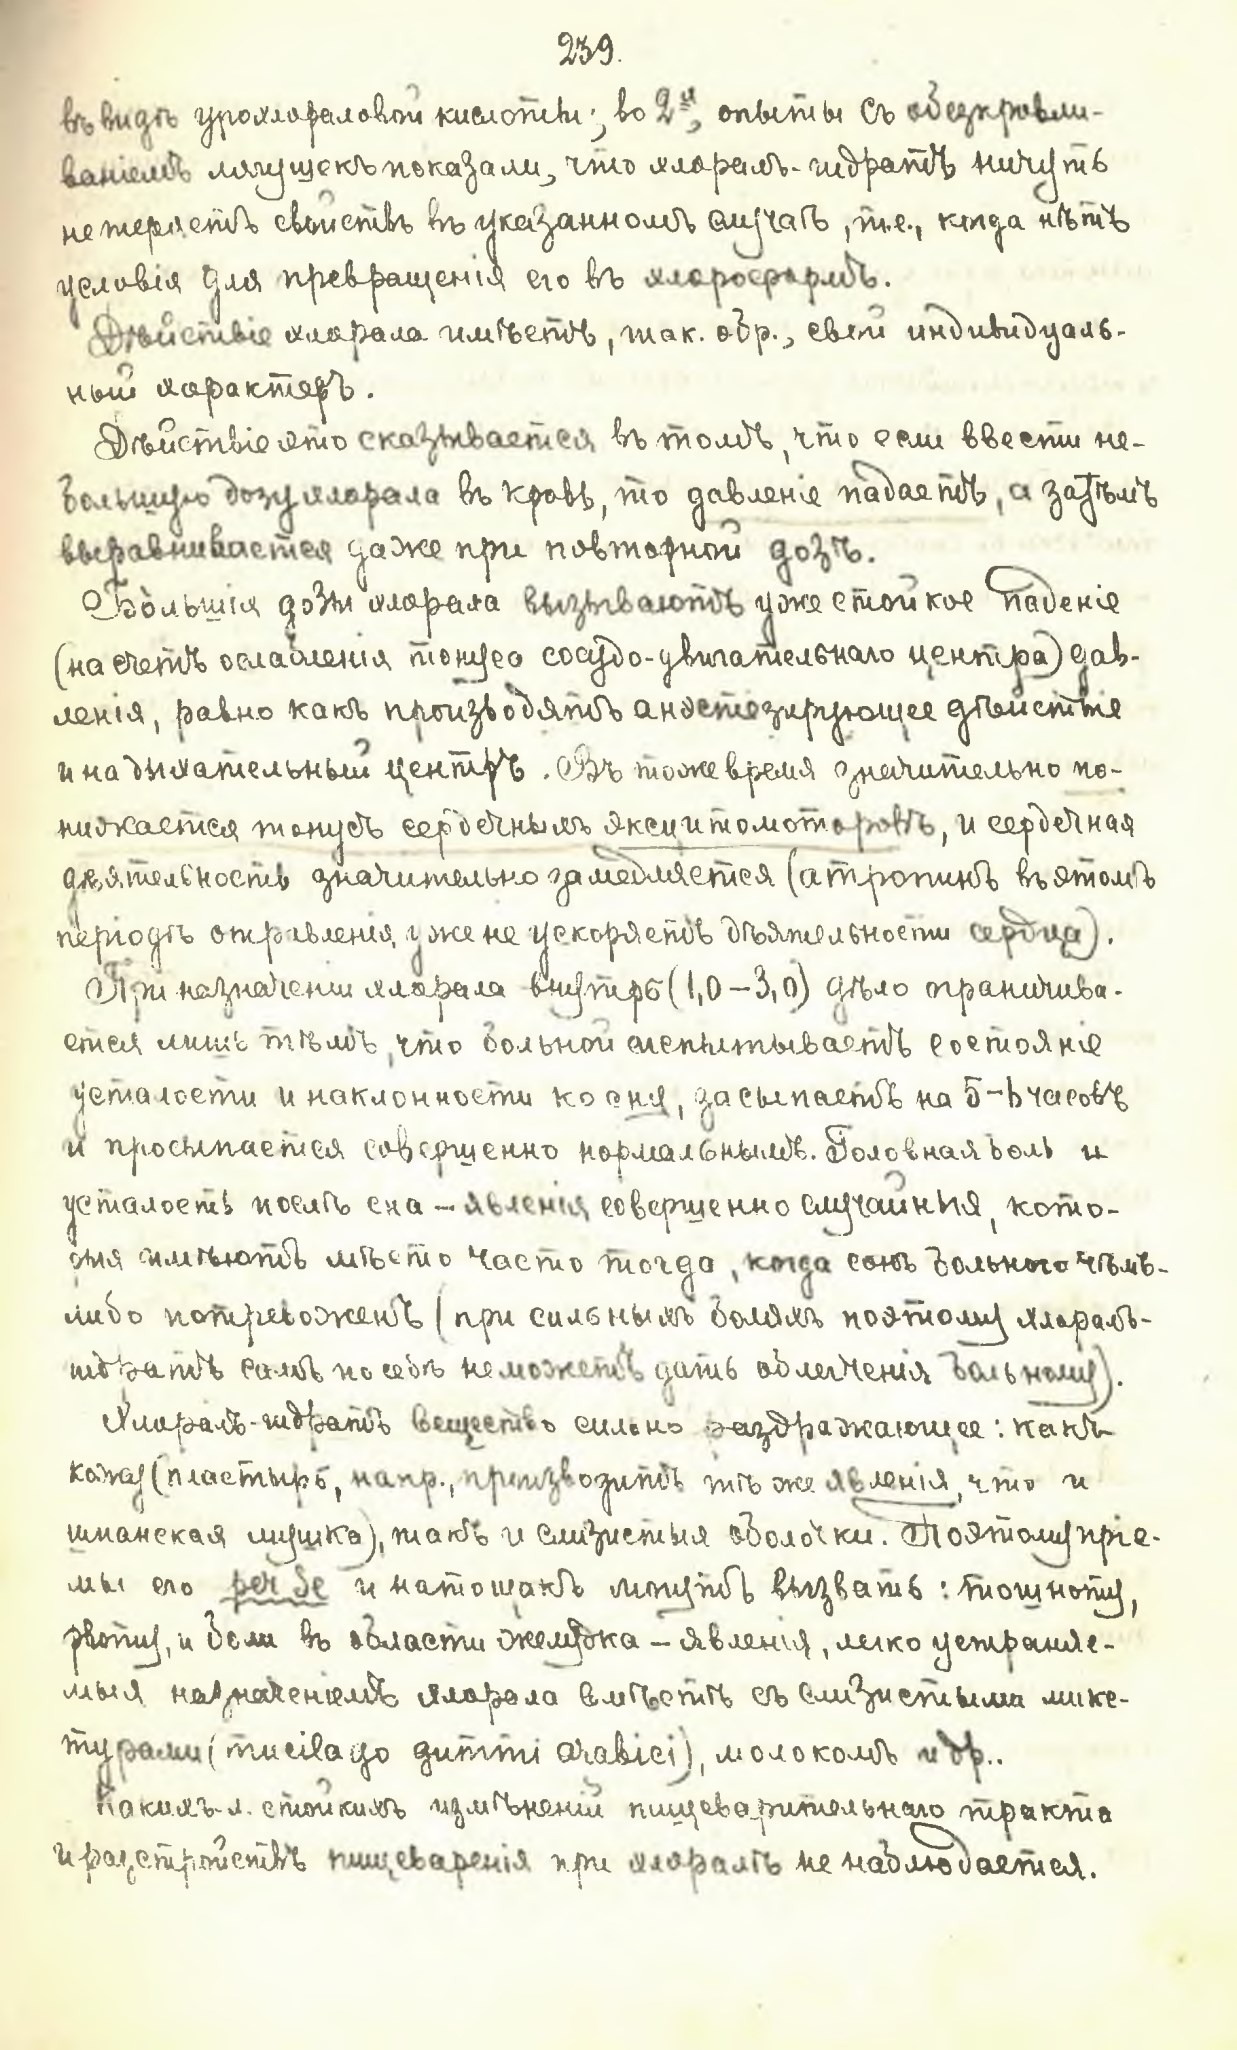 239.
въ видѣ урохлораловой кислоты; во 2ыхъ, опыты съ обезкровли-
ваніемъ лягушекъ показали, что хлоралъ-гидратъ ничуть
не теряетъ свойствъ въ указанномъ случаѣ, т.е., когда нѣтъ
условія для превращенія его въ хлороформъ.
Дѣйствіе хлорала имѣетъ, так. обр., свой индивидуаль-
ный характеръ.
Дѣйствіе это сказывается въ томъ, что если ввести не-
большую дозу хлорала въ кровь, то давленіе падаетъ, а затѣмъ
выравнивается даже при повторной дозѣ.
Большія дозы хлорала вызываютъ уже стойкое паденіе
(на счетъ ослабленія тонуса сосудо-двигательнаго центра) дав-
ленія, равно какъ производятъ анэстезирующее дѣйствіе
и на дыхательный центръ. Въ тоже время значительно по-
нижается тонусъ сердечныхъ эксцитомоторовъ, и сердечная
дѣятельность значительно замедляется (атропинъ въ этомъ
періодѣ отравленія уже не ускоряетъ дѣятельности сердца).
При назначеніи хлорала внутрь (1,0–3,0) дѣло ограничива-
ется лишь тѣмъ, что больной испытываетъ состояніе
усталости и наклонности ко сня, засыпаетъ на 5–6 часовъ
и просыпается совершенно нормальнымъ. Головная боль и
усталость послѣ сна – явленія совершенно случайныя, кото-
рыя имѣютъ мѣсто часто тогда, когда сонъ больного чѣмъ-
либо потревоженъ (при сильныхъ боляхъ поэтому хлоралъ-
гидратъ самъ по себѣ не можетъ дать облегченія больному).
Хлоралъ-гидратъ вещество сильно раздражающее: какъ
кожу (пластырь, напр., производитъ тѣ же явленія, что и
шпанская мушка), такъ и слизистыя оболочки. Поэтому пріе-
мы его per se и натощакъ могутъ вызвать: тошноту,
рвоту, и боли въ области желудка – явленія, легко устраняе-
мыя назначеніемъ хлорала вмѣстѣ съ слизистыми микс-
турами (mucilago gummi arabici), молокомъ и др..
Какихъ-л. стойкихъ измѣненій пищеварительнаго тракта
и разстройствъ пищеваренія при хлоралѣ не наблюдается.